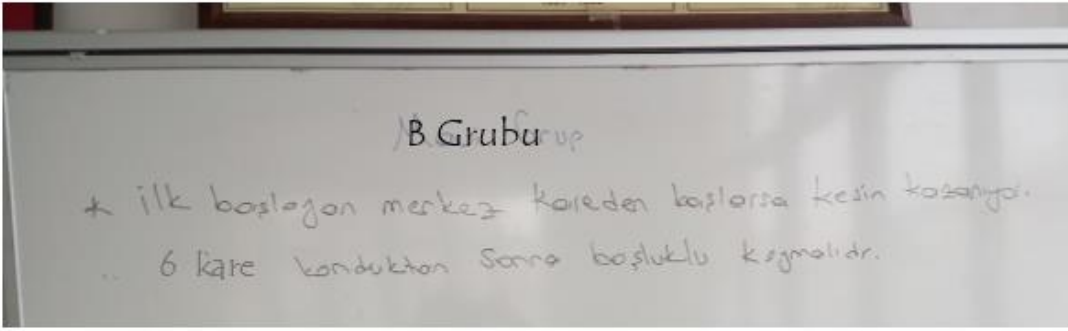 B Grubu
* ilk başlayan merkez kareden başlarsa kesin kazanıyor.
6 kare konduktan sonra boşluklu koymalıdır.